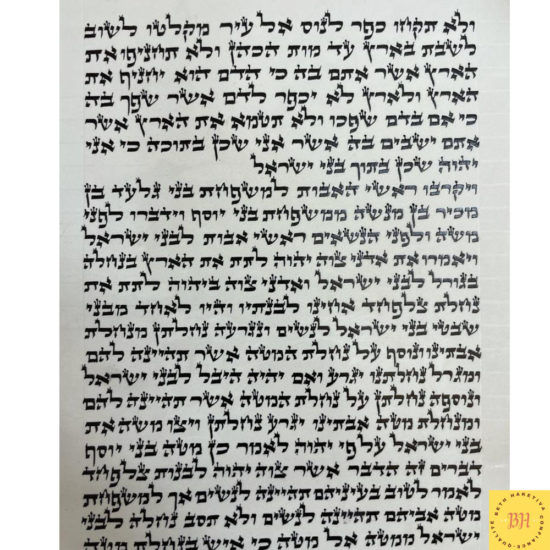 ולא תקחו כפר לנוס אל עיר מקלטו לשוב
לשבת בארץ עד מות הכהן ולא תחניפו את
הארץ אשר אתם בה כי הדם הוא יחניף את
הארץ ולארץ לא יכפר לדם אשר שפך בה
כי אם בדם שפכו ולא תטמא את הארץ אשר
אתם ישבים בה אשר אני שכן בתוכה כי אני
יהוה שכן בתוך בני ישראל
ויקרבו ראשי האבות למשפחת בני גלעד בן
מכיר בן מנשה ממשפחת בני יוסף וידברו לפני
משה ולפני הנשאים ראשי אבות לבני ישראל
ויאמרו את אדני צוה יהוה לתת את הארץ בנחלה
בגורל לבני ישראל ואדני צוה ביהוה לתת את
נחלת צלפחד אחינו לבנתיו והיו לאחד מבני
שבטי בני ישראל לנשים ונגרעה נחלתן מנחלת
אבתינו ונוסף על נחלת המטה אשר תהיינה להם
ומגרל נחלתנו יגרע ואם יהיה היבל לבני ישראל
ונוספה נחלתן על נחלת המטה אשר תהיינה להם
ומנחלת מטה אבתינו יגרע נחלתן ויצו משה את
בני ישראל על פי יהוה לאמר כן מטה בני יוסף
דברים זה הדבר אשר צוה יהוה לבנות צלפחד
לאמר לטוב בעיניהם תהיינה לנשים אך למשפחת
מטה אביהם תהיינה לנשים ולא תסב נחלה לבני
ישראל ממטה אל מטה כי איש בנחלת מטה
BETH HAKETIVA CONFIANCE QUALITE
BH